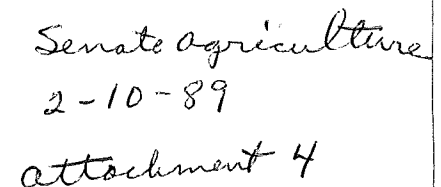 Senate Agriculture
2-10-89
attachment 4